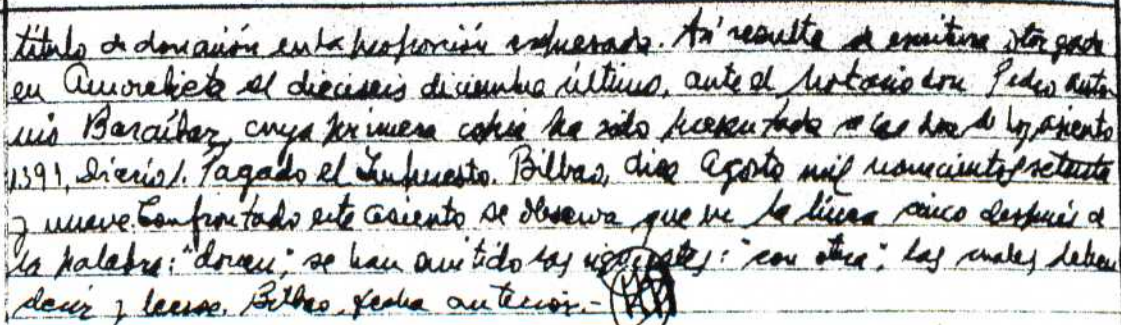 título de donación en la proporción expresada. Así resulta de escritura otorgada
en Amorebieta el dieciseis diciembre último, ante el Notario don Pedro Anto
nio Baraibar, cuya primera copia ha sido presentada a las dos de hoy, asiento
1391, Diario 1. Pagado el Impuesto. Bilbao, diez Agosto mil novecientos setenta
y nueve. Confrontado este asiento se observa que en la línea cinco después de
la palabra: "donan"; se han omitido las siguientes: "con otra"; las cuales deben
decir y leerse. Bilbao, fecha anterior.-